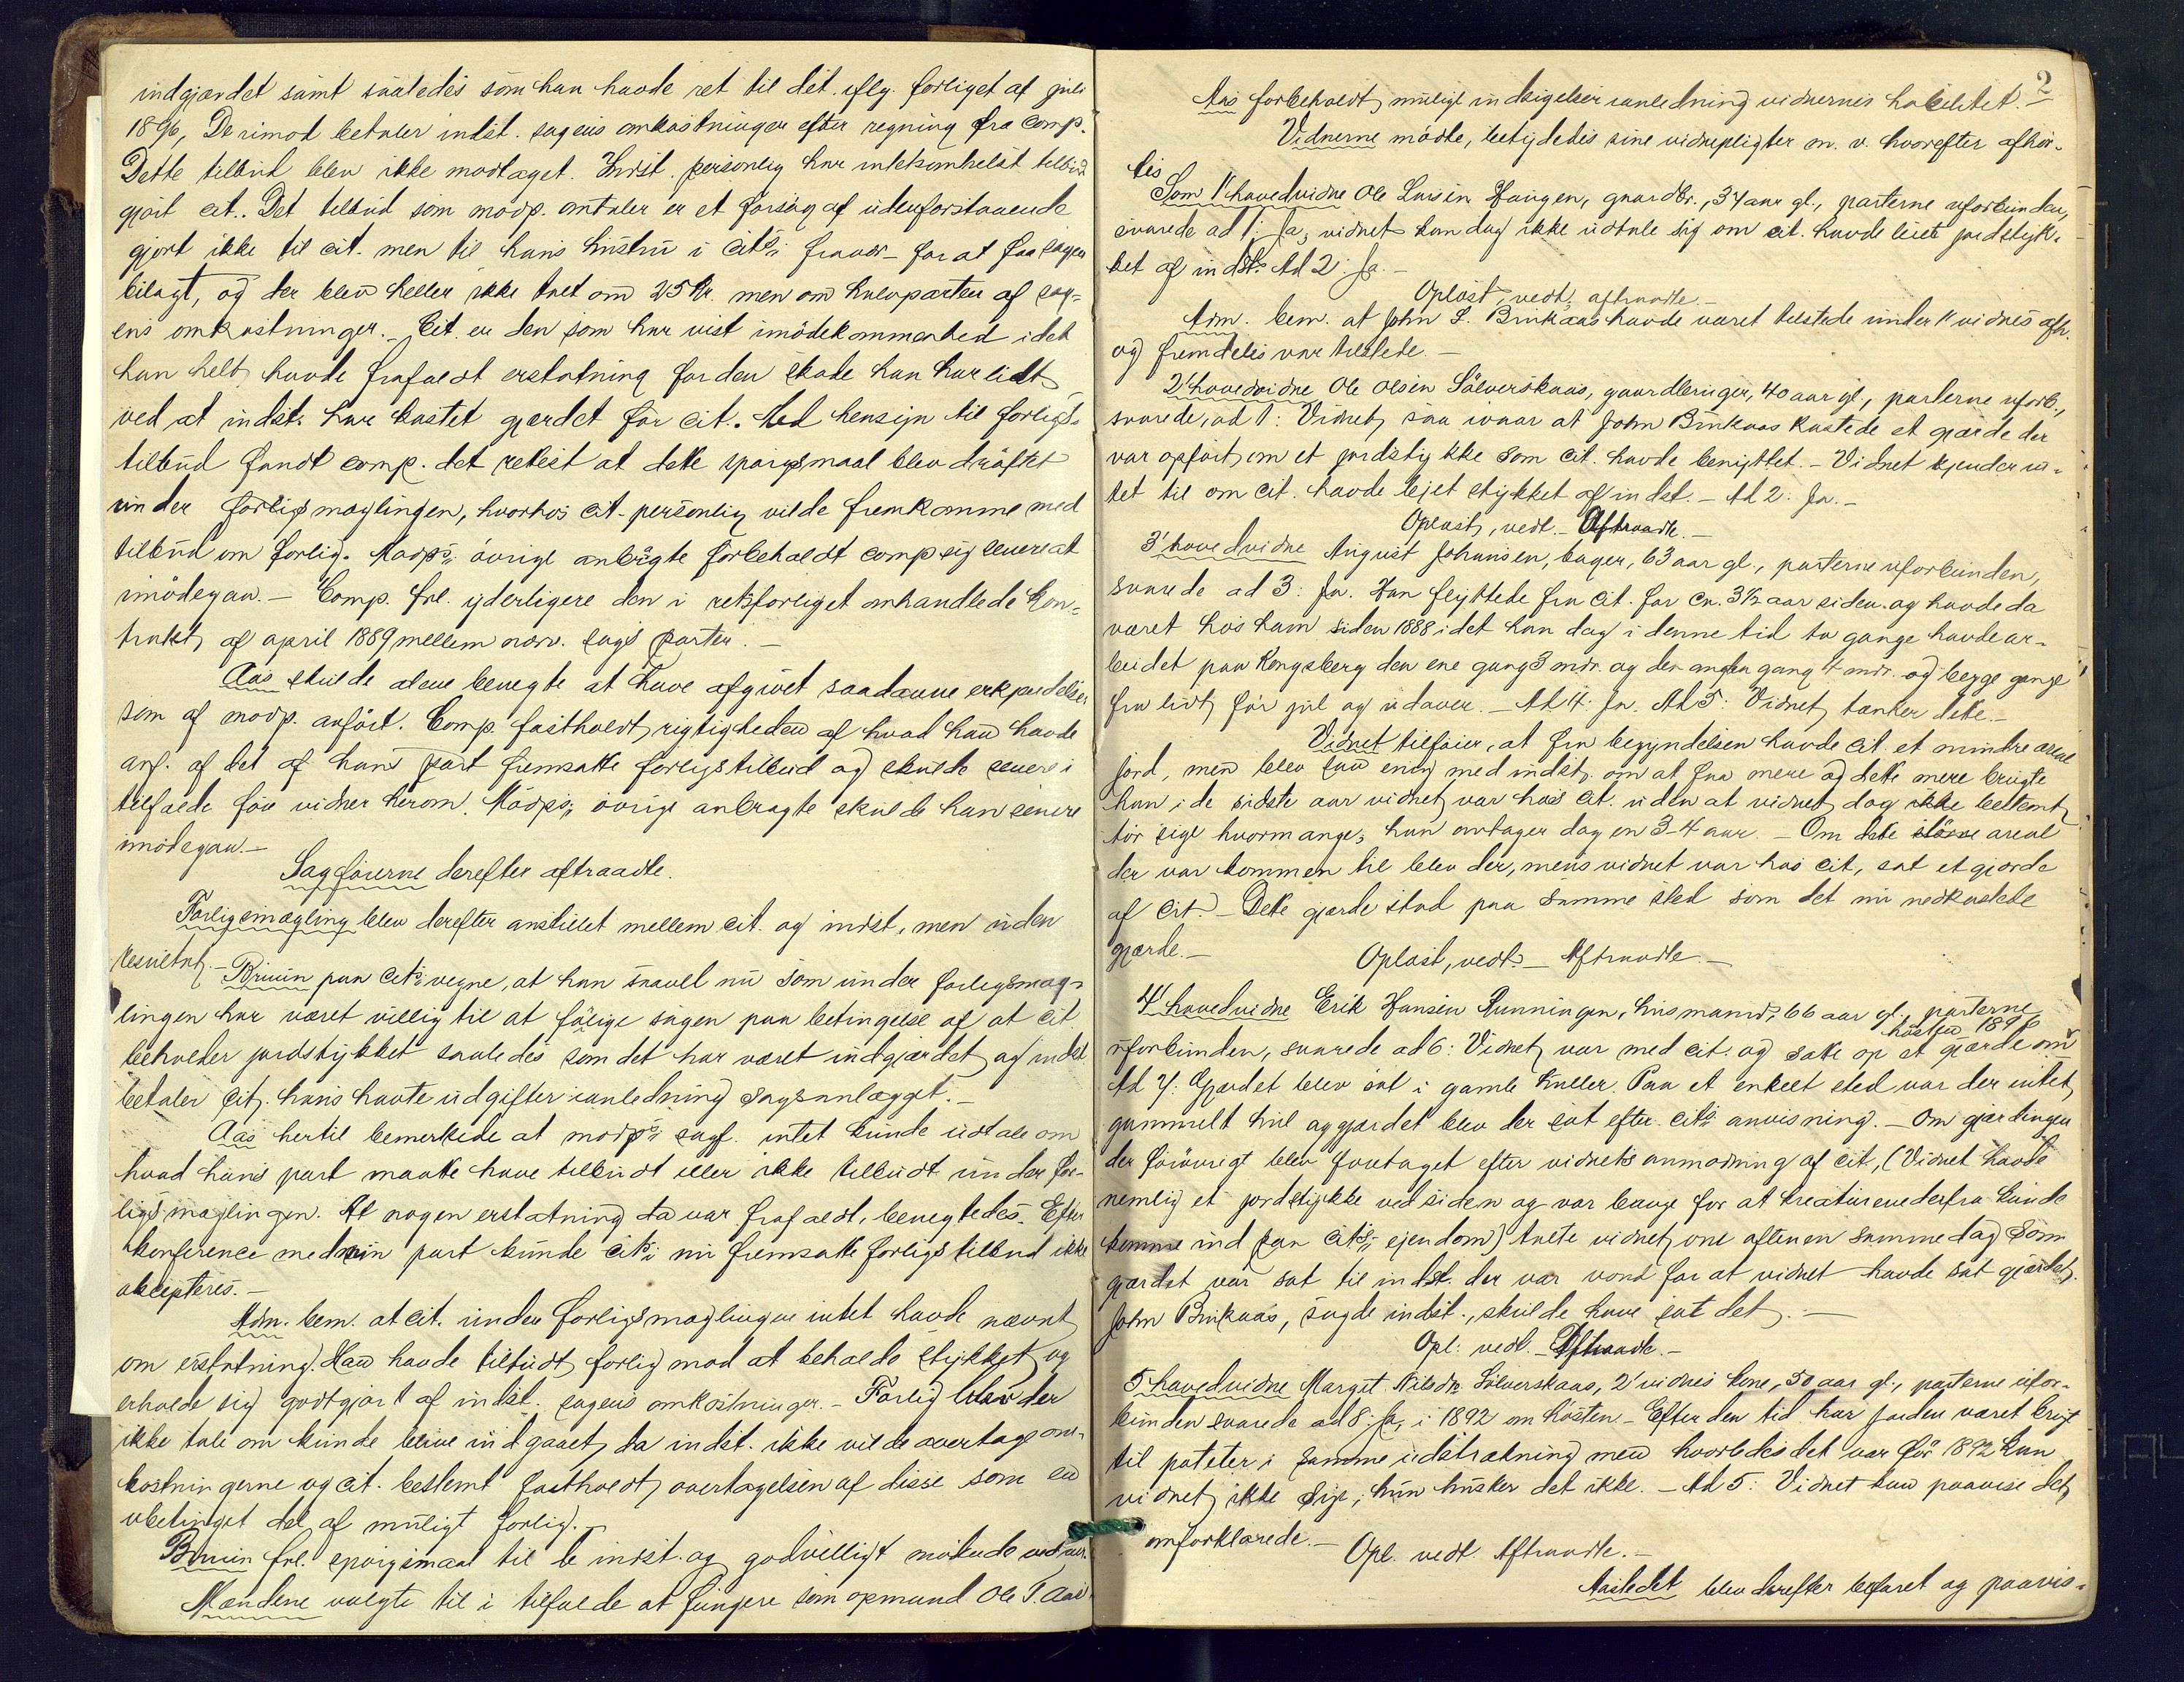 indgjærdet samt saaledes som han havde ret til det iflg. forliget af juli
1896, Derimod betaler indst. sagens omkostninger efter regning fra comp.
Dette tilbud blev ikke modtaget. Indst. personlig har intetsomhelst tilbud
gjort cit.. Det tilbud som modp. omtaler er et forsøg af udenforstaaende
gjort ikke til cit. men til hans hustru i cits: fravær – for at faa sagen
bilagt, og der blev heller ikke talt om 25 Kr. men om halvparten af sag-
ens omkostninger. – Cit. er den som har vist imödekommenhed idet
han helt havde frafaldt erstatning for den skade han har lidt
ved at indst. har kastet gjærdet for cit. Med hensyn til forligs-
tilbud fandt comp. det rettest at dette spørgsmaal blev dröftet
under forligsmæglingen, hvorhos cit. personlig vilde fremkomme med
tilbud om forlig. Modps: övrige anbragte forbeholdt comp sig senere at
imödegaa. – Comp. frl. yderligere den i retsforliget omhandlede kon-
trakt af april 1889 mellem nærv. sags parter. –
Aas skulde alene benegte at have afgivet saadanne erkjendelser
som af modp. anfört. Comp. fastholdt rigtigheden af hvad han havde
anf. af det af hans part fremsatte forligstilbud og skulde senere i
tilfælde före vidner herom. Modps: övrige anbragte skulde han senere
imödegaa. –
Sagförerne derefter aftraadte.
Forligsmægling blev derefter anstillet mellem cit. og indst, men uden
resultat. –
Bruun paa cits: vegne, at han saavel nu som under forligsmæg-
lingen har været villig til at forlige sagen paa betingelse af at cit.
beholder jordstykket saaledes som det har været indgjærdet og indst.
betaler cit. hans havte udgifter i anledning sagsanlægget. –
Aas hertil bemerkede at modps: sagf. intet kunde udtale om
hvad hans part maatte have tilbudt eller ikke tilbudt under for-
ligsmæglingen. At nogen erstatning da var frafaldt, benegtedes. Efter
konference med sin part kunde cits: nu fremsatte forligstilbud ikke
akcepteres. –
Adm. bem. at cit. under forligsmæglingen intet havde nævnt
om erstatning. Han havde tilbudt forlig mod at beholde stykket og
erholde sig godtgjort af indst. sagens omkostninger. – Forlig blev der
ikke tale om kunde blive indgaaet, da indst. ikke vilde overtage om-
kostningerne og cit. bestemt fastholdt overtagelsen af disse som en
ubetinget del af muligt forlig. –
Bruun frl. spörgsmaal til de indst. og godvilligt mötende vidner.
Mændene valgte til i tilfælde at fungere som opmand Ole T. Aas.
2
Aas forbeholdt mulige indsigelser i anledning vidnernes habilitet. –
Vidnerne mödte, betydedes sine vidnepligter m. v. hvorefter afhör-
tes
Som 1' hovedvidne Ole Larsen Haugen, gaardbr., 34 aar gl., parterne uforbunden,
svarede ad 1: Ja, vidnet kan dog ikke udtale sig om cit. havde leiet jordstyk-
ket af indst. Ad 2: Ja. –
Oplæst, vedt. aftraadte. –
Adm. bem. at John L. Brukaas havde været tilstede under 1' vidnes afh.
og fremdeles var tilstede. –
2' hovedvidne Ole Olsen Sölverskaas, gaardbruger, 40 aar gl., parterne uforb.,
svarede, ad 1: Vidnet saa ivaar at John Brukaas kastede et gjærde der
var opfört om et jordstykke som cit. havde benyttet. – Vidnet kjender in-
tet til om cit. havde lejet stykket af indst. – Ad 2: Ja. –
Oplæst, vedt. – Aftraadte. –
3' hovedvidne August Johansen, bager, 63 aar gl., parterne uforbunden,
svarede ad 3: Ja. Han flyttede fra cit. for ca. 3½ aar siden og havde da
været hos ham siden 1888 idet han dog i denne tid to gange havde ar-
beidet paa Kongsberg den ene gang 3 mdr. og den anden gang 4 mdr. og begge gange
fra lidt för jul og udover. – Ad 4: Ja. Ad 5: Vidnet tænker dette. –
Vidnet tilföier, at fra begyndelsen havde cit. et mindre areal
jord, men blev saa enig med indst. om at faa mere og dette mere brugte
han i de sidste aar vidnet var hos cit. uden at vidnet dog ikke bestemt
tör sige hvormange; han antager dog en 3-4 aar. – Om dette större areal
der var kommen til blev der, mens vidnet var hos cit, sat et gjærde
af cit. – Dette gjærde stod paa samme sted som det nu nedkastede
gjærde. –
Oplæst, vedt. – Aftraadte. –
4' hovedvidne Erik Hansen Runningen, husmand, 66 aar gl., parterne
uforbunden, svarede ad 6: Vidnet var med cit. og satte op et gjærde om
hösten 1896
Ad 7: Gjærdet blev sat i gamle huller. Paa et enkelt sted var der intet
gammelt hul og gjærdet blev der sat efter cits: anvisning. – Om gjærdingen
der forövrigt blev foretaget efter vidnets anmodning af cit, (Vidnet havde
nemlig et jordstykke ved siden og var bange for at kreaturene derfra kunde
komme ind paa cits: ejendom) talte vidnet om aftenen samme dag som
gjærdet var sat til indst. der var vond for at vidnet havde sat gjærdet.
John Brukaas, sagde indst., skulde have sat det. –
Opl. vedt. – Aftraadte. –
5 hovedvidne Margit Nilsdr. Sölverskaas, 2' vidnes kone, 50 aar gl., parterne ufor-
bunden svarede ad 8: Ja, i 1892 om hösten. – Efter den tid har jorden været brugt
til poteter i samme udstrækning men hvorledes det var för 1892 kan
vidnet ikke sige; hun husker det ikke. – Ad 5: Vidnet kan paavise det
omforklarede. –
Opl. vedt. Aftraadte. –
Aastedet blev derefter befaret og paavis-